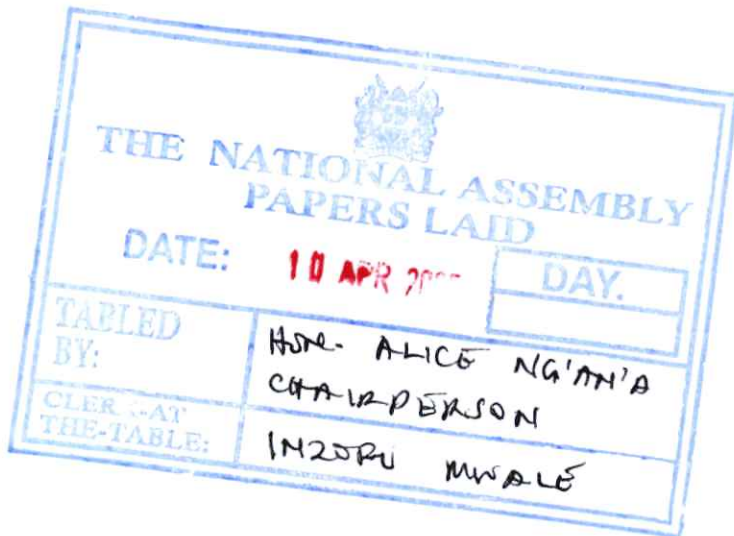 THE NATIONAL ASSEMBLY
PAPERS LAID
DATE: 10 APR DAY.
TABLED
BY:
HON. ALICE NG'AN'A
CHAIRPERSON
CLERK-AT
THE-TABLE:
INZOFU MWALE